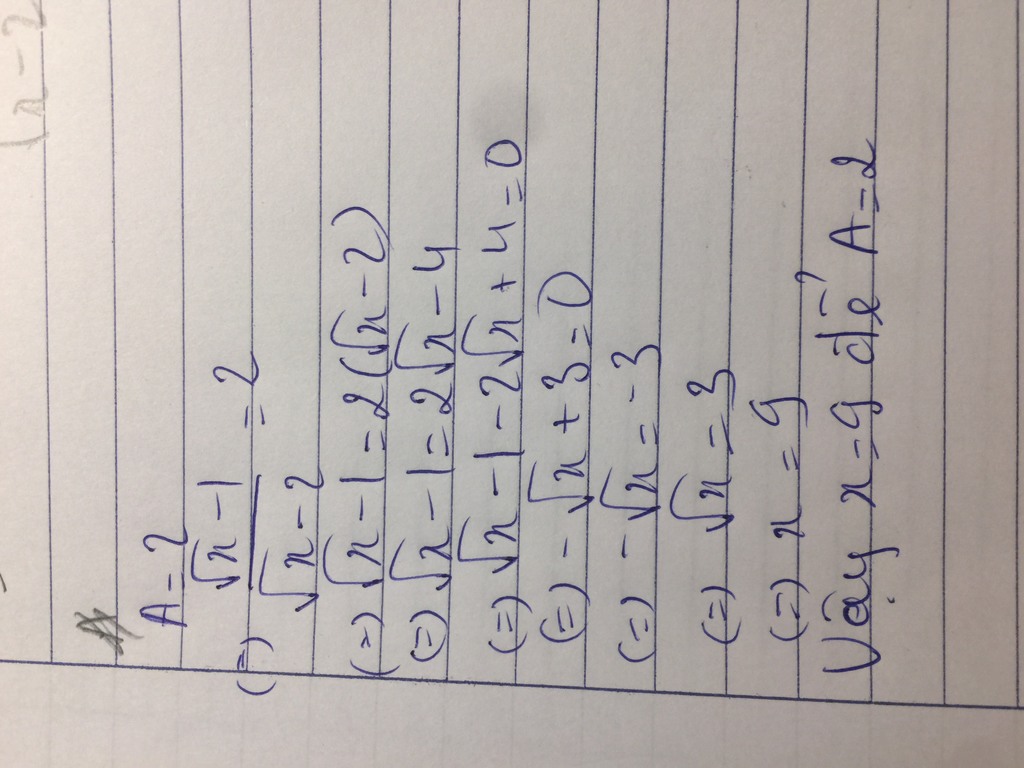 A = 2
(=) √x - 1 / √x - 2 = 2
(=) √x - 1 = 2(√x - 2)
(=) √x - 1 = 2√x - 4
(=) √x - 1 - 2√x + 4 = 0
(=) - √x + 3 = 0
(=) - √x = - 3
(=) √x = 3
(=) x = 9
Vậy x = 9 để A = 2